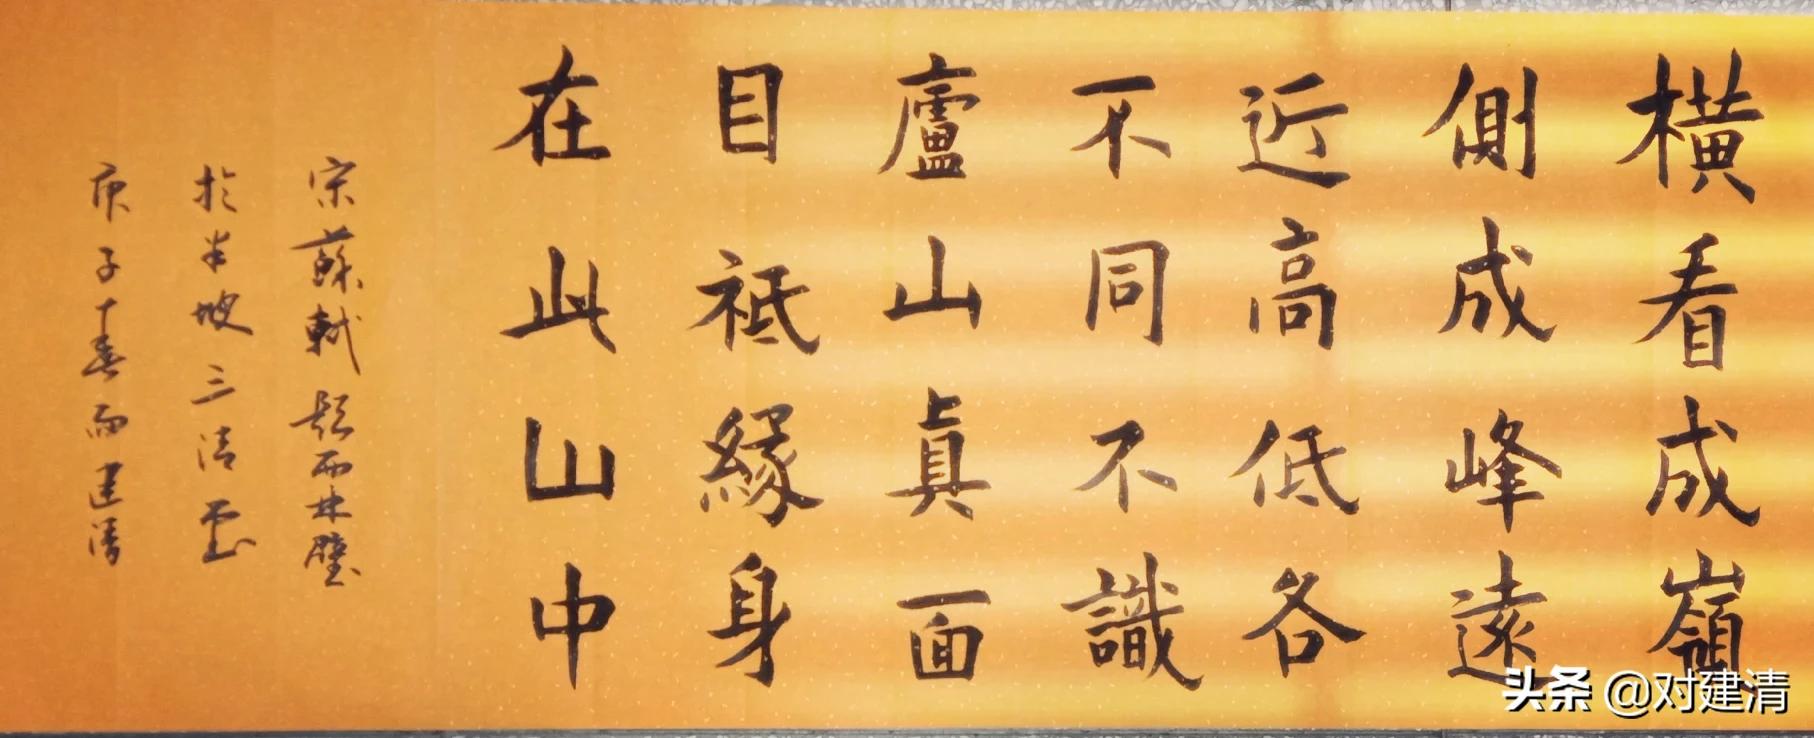 橫看成嶺
側成峰遠
近高低各
不同不識
廬山真面
目祗緣身
在此山中
宋蘇軾題西林壁
於半坡三清
庚子春建清
头条 @对建清